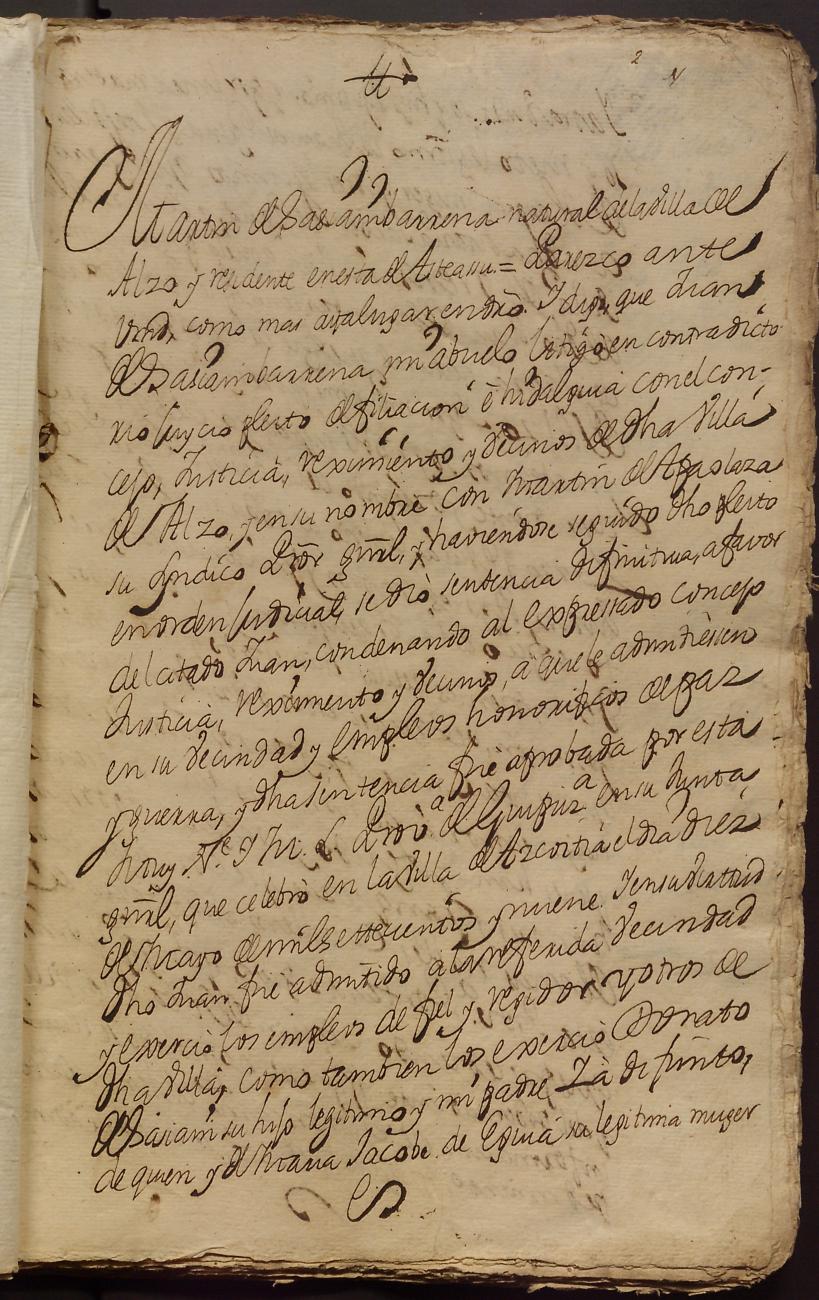 2
Martin de Sasiambarrena natural de la Villa de
Alzo y residente en esta de Asteassu = Parezco ante
Vmd, como mas aya lugar en dro. Y digo, que Juan
de Sasiambarrena mi abuelo litigó en contradicto
rio juycio pleito de filiacion é hidalguia con el con-
cejo, Justicia, reximiento y vecinos de dha Villa
de Alzo, y en su nombre con Martin de
su Syndico Pror gnral, y haviendose seguido dho pleito
en orden judicial, se dió sentencia difinitiua, a favor
del citado Juan, condenando al expressado concejo
Justicia, reximiento y vecinos, a que le admitiessen
en su vecindad y empleos honorificos de paz
y guerra, y dha sentencia fue aprobada por esta
muy N.e y M. L. Prov.a de Guipuz.a en su Junta
gnral, que celebró en la Villa de Azcoitia el dia diez
de Mayo de mil settecientos y nueve. Y en su virtud
dho Juan fue admitido a la referida vecindad
y exerció los empleos de fiel y regidor y otros de
dha Villa, como tambien los exerció Donato
de Sasiam su hijo legitimo y mi padre Ya difunto,
de quien y de Maria Jacobe de Eguia su legitima muger